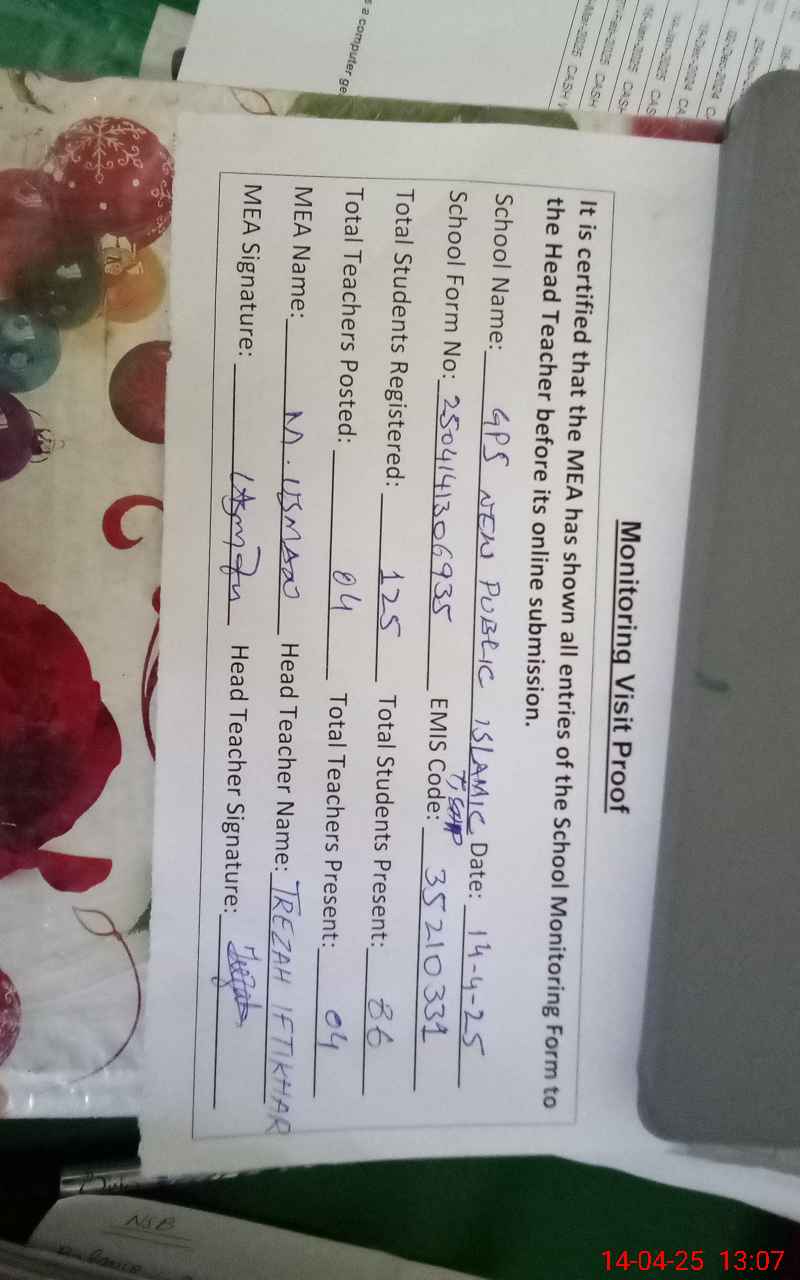 Monitoring Visit Proof
It is certified that the MEA has shown all entries of the School Monitoring Form to
the Head Teacher before its online submission.
School Name: GPS NEW PUBLIC ISLAMIC Date: 14-4-25
School Form No: 2504141306935 EMIS Code: 35210331
Total Students Registered: 125 Total Students Present: 86
Total Teachers Posted: 04 Total Teachers Present: 04
MEA Name: M. USMAN Head Teacher Name: TREZAH IFTIKHAR
MEA Signature: Head Teacher Signature:
s a computer ge
-Mar-2025 CASH
-Feb-2025 CASH
-Jan-2025 CASH
-Jan-2025 CAS
-Dec-2024 CA
02-Dec-2024 C
NSB
14-04-25 13:07